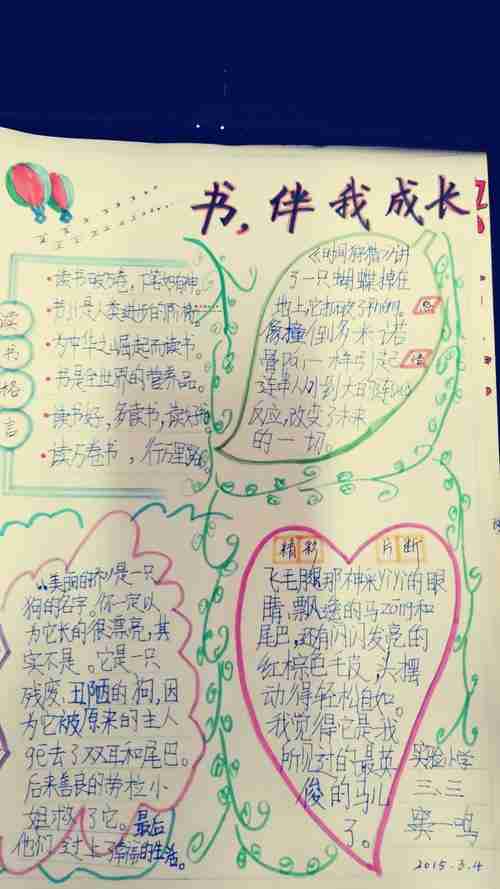 书，伴我成长
读
书
格
言
读书破万卷，下笔如有神。
书山是人类进步的阶梯。
为中华之崛起而读书。
书是全世界的营养品。
读书好，多读书，读好书
读万卷书，行万里路。
讲
了一只蝴蝶掉在
地上
像撞倒多米诺
骨阶一样引起
连串从小到大的连
反应，改变了未来
的一切。
美丽的是一只
狗的名字。你一定以
为它长的很漂亮，其
实不是。它是一只
残废、丑陋的狗，因
为它被原来的主人
ge去了双耳和尾巴。
后来善良的劳拉小
姐救了它。最后
他们过上了幸福的生活。
精彩 片断
飞毛腿那神采yiyi的眼
睛、飘逸的马zong和
尾巴，还有闪闪发亮的
红棕色毛皮，头摆
动得轻松自如。
我觉得它是我
所见过的最英
俊的马儿
了。
实验小学
三、三
窦一鸣
2015.3.4